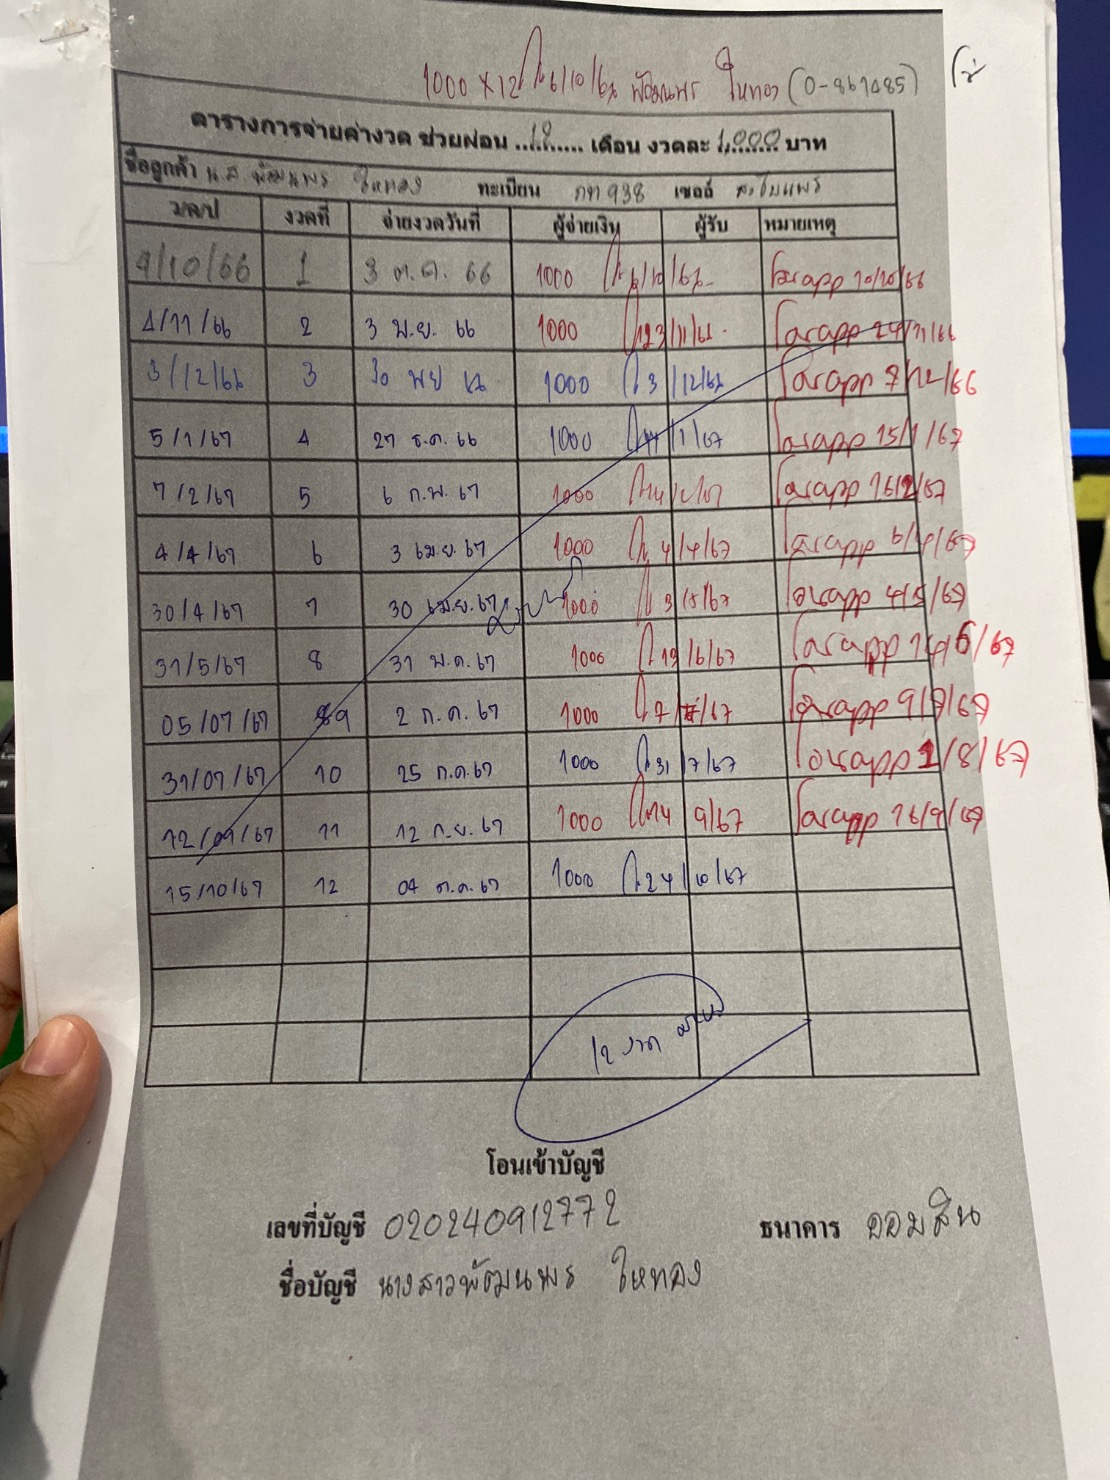 1000 x 12 6/10/66 พัฒนพร ใหทอง (0-861485)
ตารางการจ่ายค่างวด ช่วยผ่อน ...12...... เดือน งวดละ 1,000 บาท
ชื่อลูกค้า น.ส. พัฒนพร ใหทอง ทะเบียน 938 เซลล์
ว/ด/ป งวดที่ จ่ายงวดวันที่ ผู้จ่ายเงิน ผู้รับ หมายเหตุ
4/10/66 1 3 ต.ค. 66 1000 6/10/66 โอนapp 10/10/66
4/11/66 2 3 พ.ย. 66 1000 23/11/66 โอนapp 24/11/66
3/12/66 3 30 พย 66 1000 3/12/66 โอนapp 7/12/66
5/1/67 4 27 ธ.ค. 66 1000 11/1/67 โอนapp 15/1/67
7/2/67 5 6 ก.พ. 67 1000 14/2/67 โอนapp 16/2/67
4/4/67 6 3 เม.ย. 67 1000 4/4/67 โอนapp 6/4/67
30/4/67 7 30 เม.ย. 67 1000 3/5/67 โอนapp 4/5/67
31/5/67 8 31 พ.ค. 67 1000 13/6/67 โอนapp 14/6/67
05/07/67 9 2 ก.ค. 67 1000 7/7/67 โอนapp 9/7/67
31/07/67 10 25 ก.ค. 67 1000 31/7/67 โอนapp 1/8/67
12/09/67 11 12 ก.ย. 67 1000 14/9/67 โอนapp 16/9/67
15/10/67 12 04 ต.ค. 67 1000 24/10/67
12 งวด
โอนเข้าบัญชี
เลขที่บัญชี 020240912772 ธนาคาร ออมสิน
ชื่อบัญชี นางสาวพัฒนพร ใหทอง